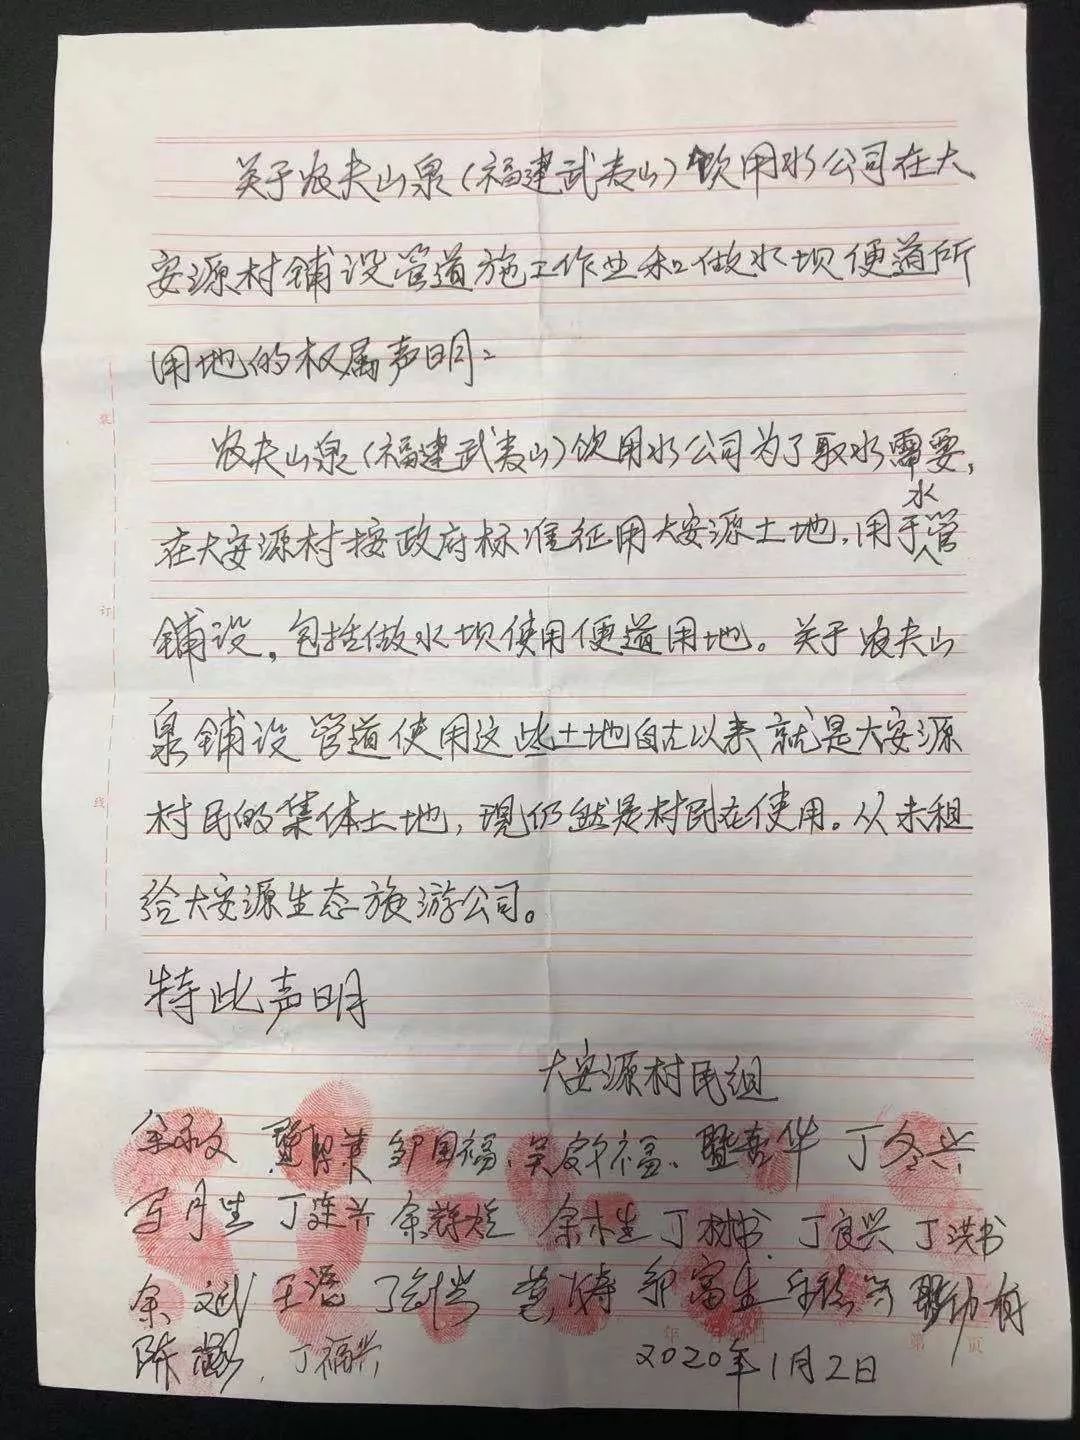 关于农夫山泉(福建武夷山)饮用水公司在大
安源村铺设管道施工作业和做水坝便道所
用地的权属声明:
农夫山泉(福建武夷山)饮用水公司为了取水需要,
在大安源村按政府标准征用大安源土地,用于水管
铺设,包括做水坝使用便道用地。关于农夫山
泉铺设管道使用这些土地自古以来就是大安源
村民的集体土地,现仍然是村民在使用。从未租
给大安源生态旅游公司。
特此声明
大安源村民组
余永文 邹国福、吴家福、暨春华 丁冬兴
丁连兴 余木生 丁树书 丁良兴 丁洪书
余文武 王浯 邹富生
陈 丁福兴
2020年1月2日
装
订
线
年 日
第 页